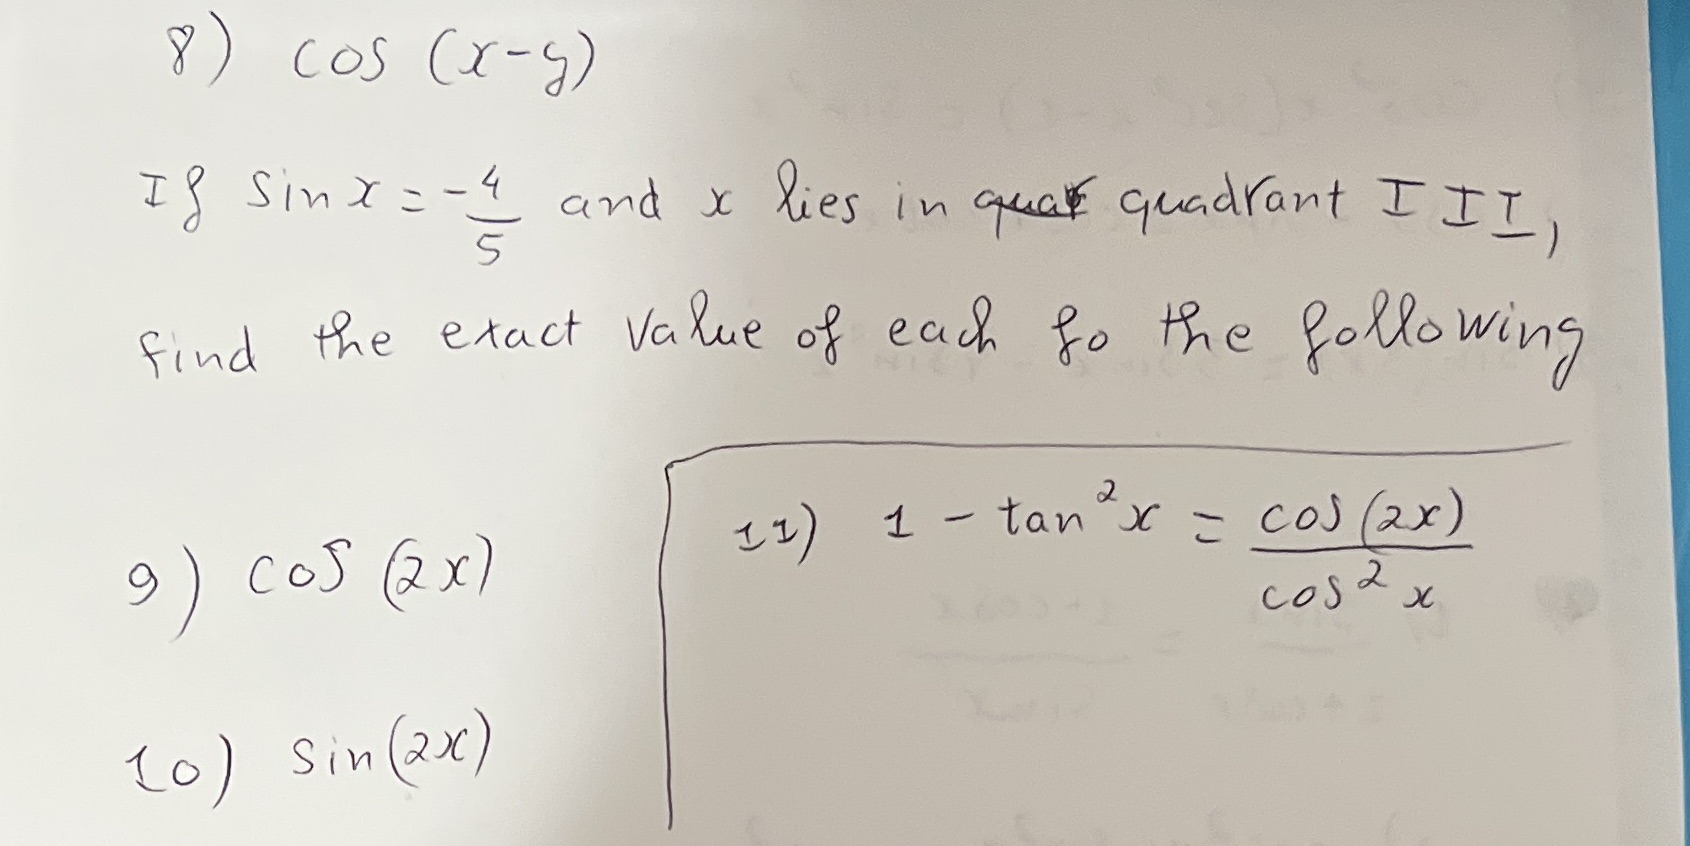 8) cos (x-y)
If sin x = -4/5 and x lies in quadrant III,
find the exact value of each fo the following
11) 1 - tan²x = cos(2x)/cos²x
9) cos (2x)
10) sin(2x)